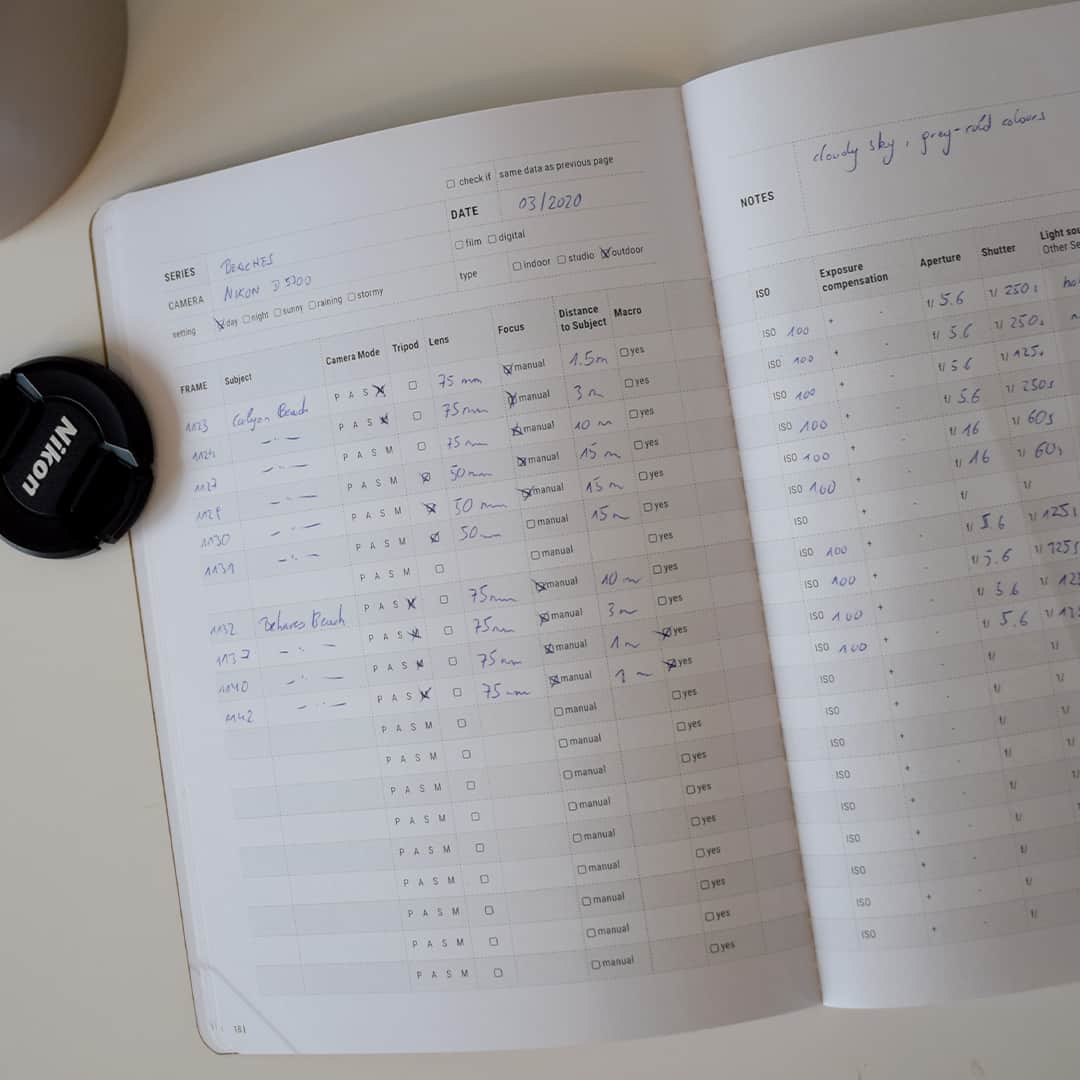 Nikon
check if same data as previous page
SERIES BEACHES DATE 03/2020
CAMERA NIKON D 5700 film digital
setting day night sunny raining stormy type indoor studio outdoor
FRAME Subject Camera Mode Tripod Lens Focus Distance to Subject Macro
1123 Calyon Beach P A S 75 mm manual 1.5m yes
1124 -"- P A S 75mm manual 3 m yes
1127 -"- P A S M 75mm manual 10 m yes
1129 -"- P A S M 50mm manual 15 m yes
1130 -"- P A S M 50 mm manual 15 m yes
1131 -"- P A S M 50mm manual 15m yes
P A S M manual yes
1132 Behares Beach P A S 75mm manual 10 m yes
1137 -"- P A S 75mm manual 3 m yes
1140 -"- P A S 75mm manual 1 m yes
1142 -"- P A S 75mm manual 1 m yes
P A S M manual yes
P A S M manual yes
P A S M manual yes
P A S M manual yes
P A S M manual yes
P A S M manual yes
P A S M manual yes
P A S M manual yes
P A S M manual yes
18|
NOTES cloudy sky, grey-cold colours
ISO Exposure compensation Aperture Shutter Light
Other
ISO 100 + - f/ 5.6 1/ 250s
ISO 100 + - f/ 5.6 1/ 250s
ISO 100 + - f/ 5.6 1/ 125s
ISO 100 + - f/ 5.6 1/ 250s
ISO 100 + - f/ 16 1/ 60s
ISO 100 + - f/ 16 1/ 60s
ISO + - f/ 1/
ISO 100 + - f/ 5.6 1/ 125s
ISO 100 + - f/ 5.6 1/ 125s
ISO 100 + - f/ 5.6 1/
ISO 100 + - f/ 5.6 1/
ISO + - f/ 1/
ISO + - f/ 1/
ISO + - f/ 1/
ISO + - f/ 1/
ISO + - f/ 1/
ISO + - f/
ISO + - f/
ISO + - f/
ISO + - f/